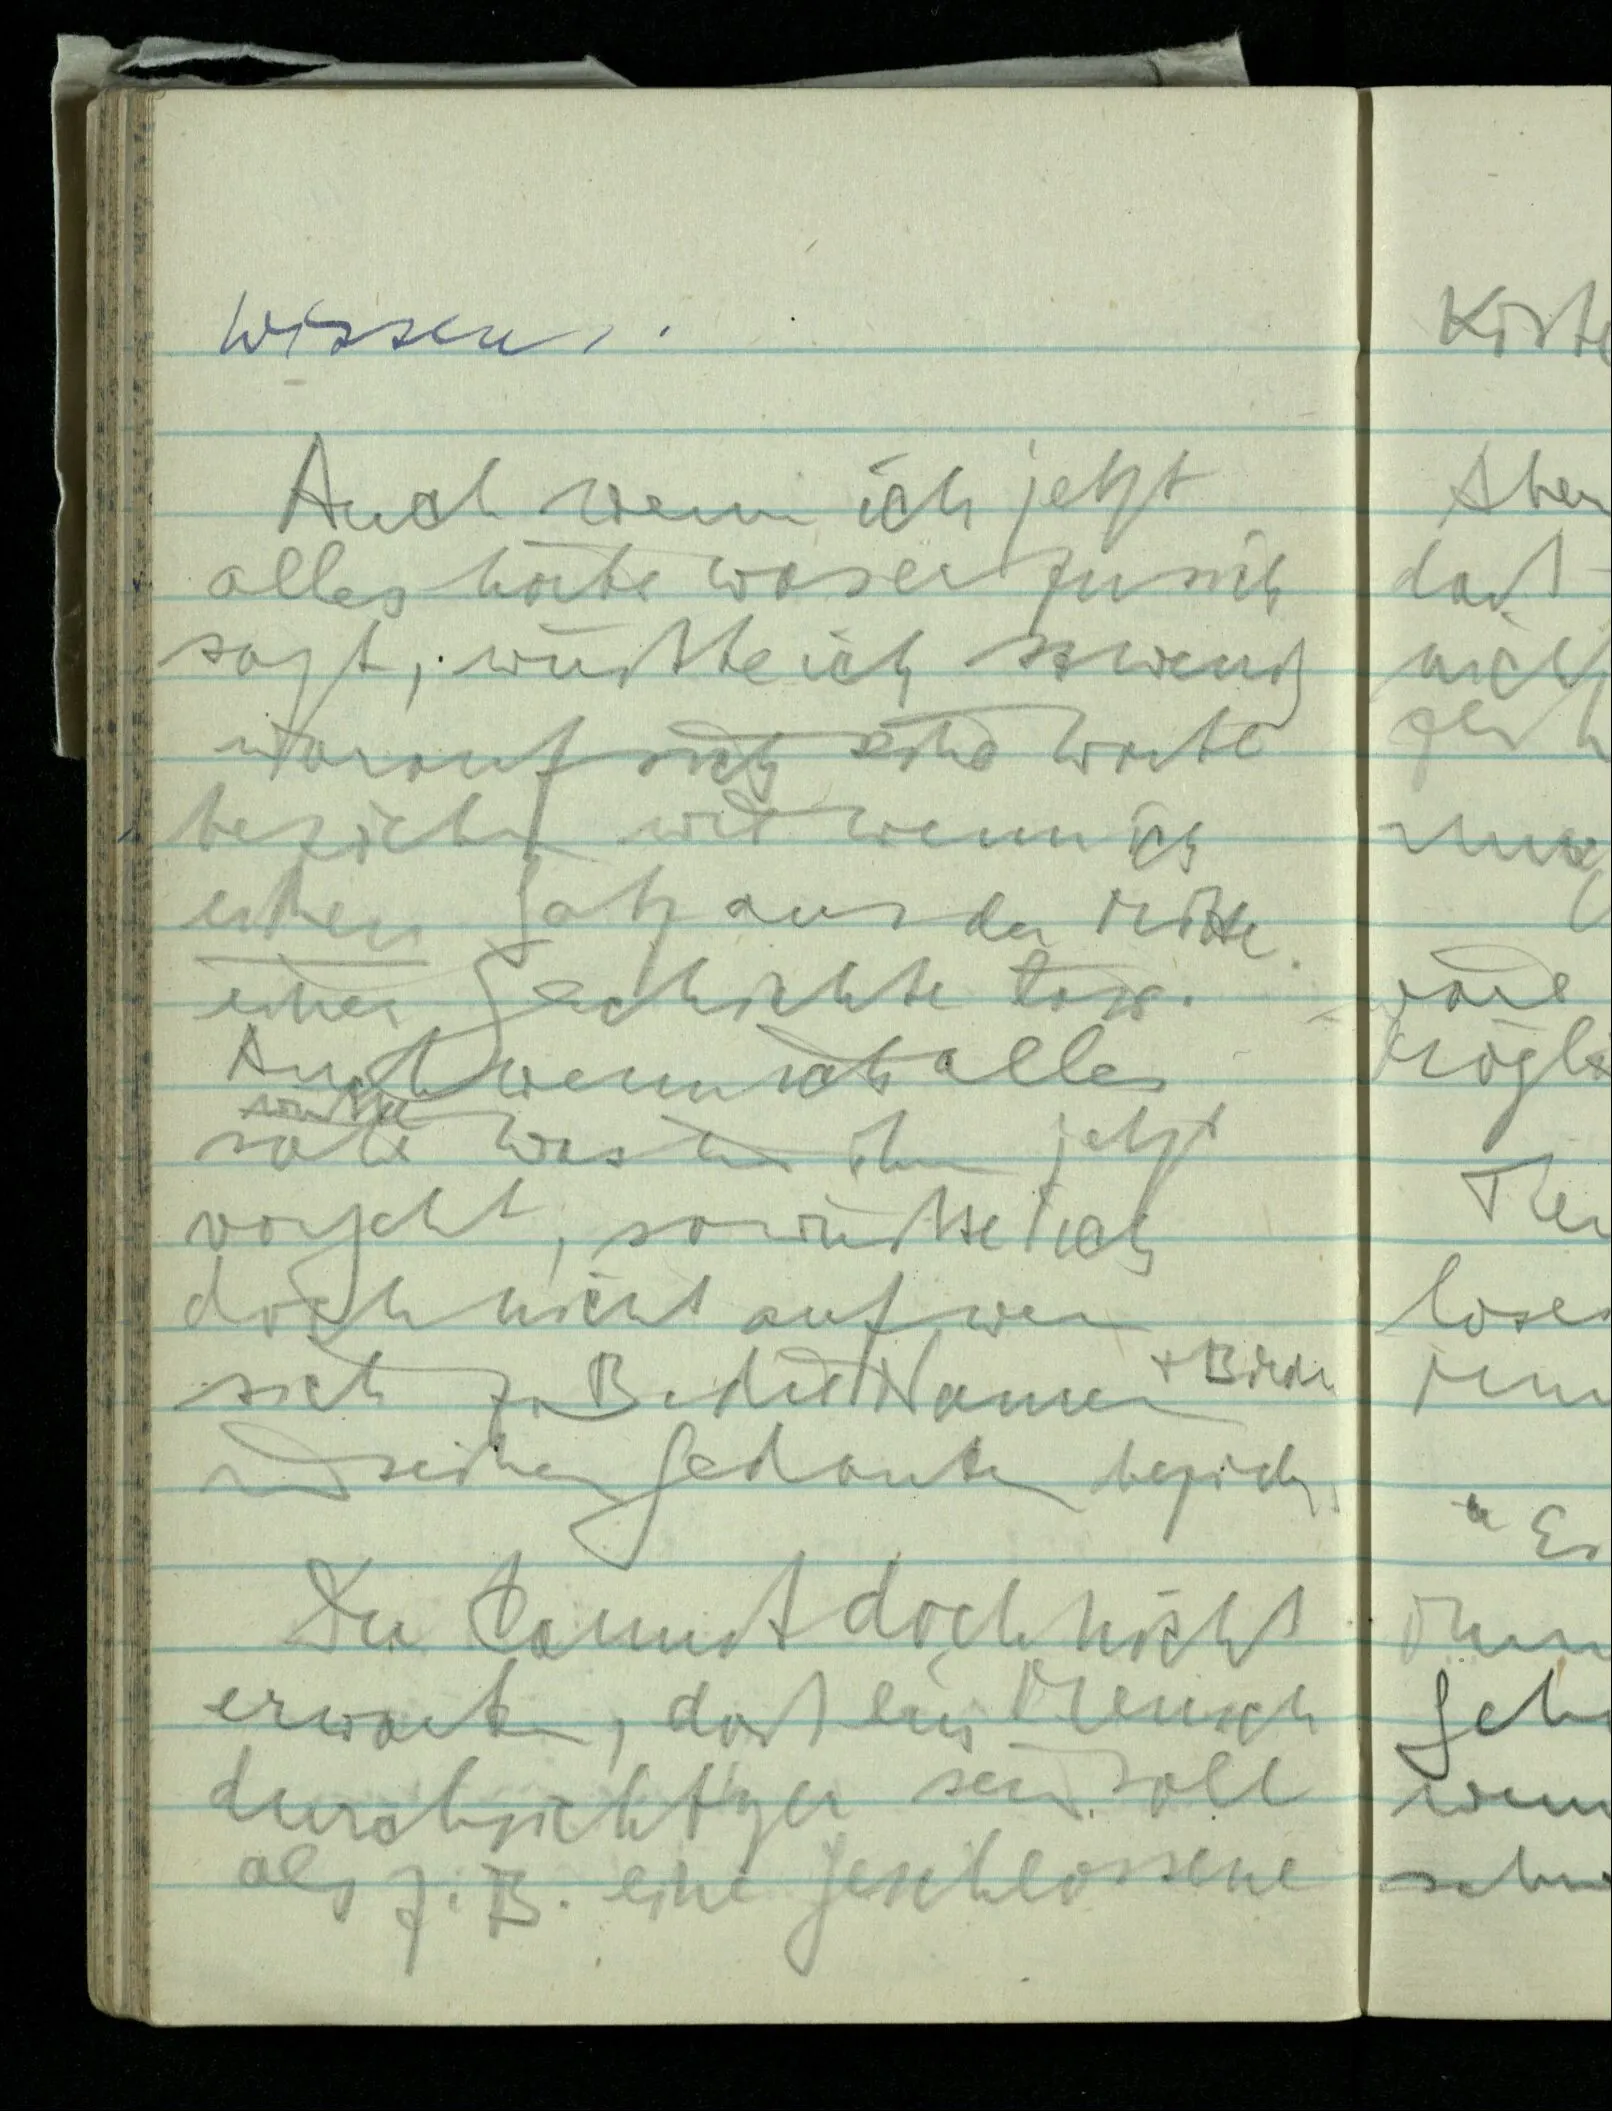 wissen.
Auch wenn ich jetzt
alles hörte was er zu sich
sagt, wüßte ich so wenig
worauf sich seine Worte
beziehen wie wenn ich
einen Satz aus der Mitte
einer Geschichte lese.
Auch wenn ich alles
wüßte
sähe was in ihm jetzt
vorgeht, so wüßte ich
doch nicht auf wen
sich z. B. die Namen + Bilder
in seinen Gedanken beziehen.
Du kannst doch nicht
erwarten, daß ein Mensch
durchsichtiger sein soll
als z. B. eine geschlossene
Kiste
Aber
daß
nicht
wäre